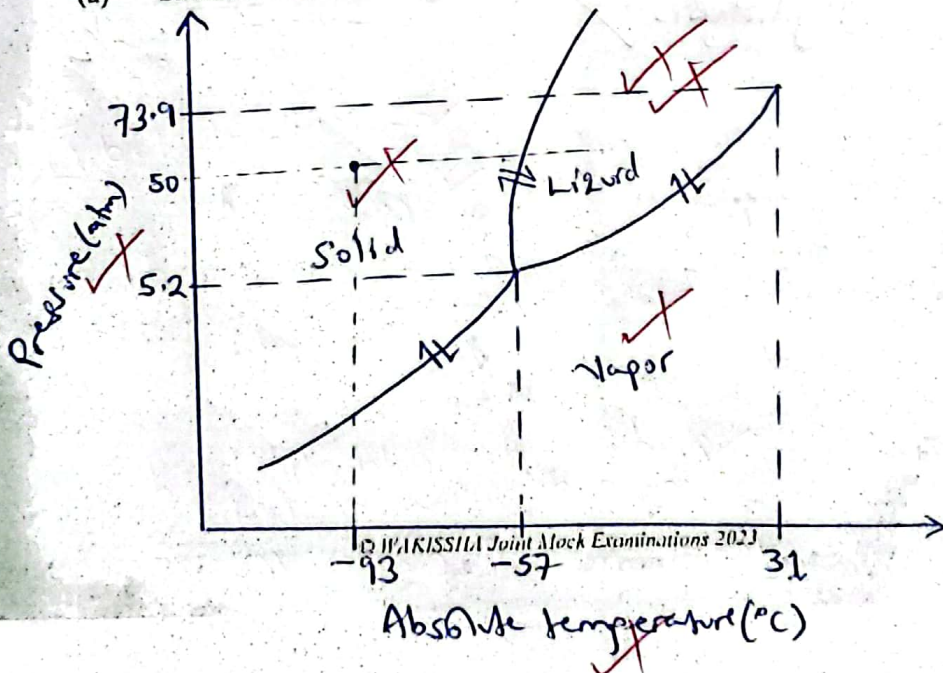 73.9
50
Pressure (atm)
Solid
Liquid
5.2
Vapor
© WAKISSHA Joint Mock Examinations 2023
-93
-57
31
Absolute temperature (°C)